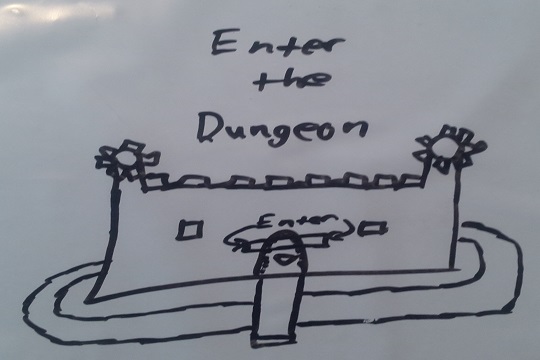 Enter
the
Dungeon
Enter